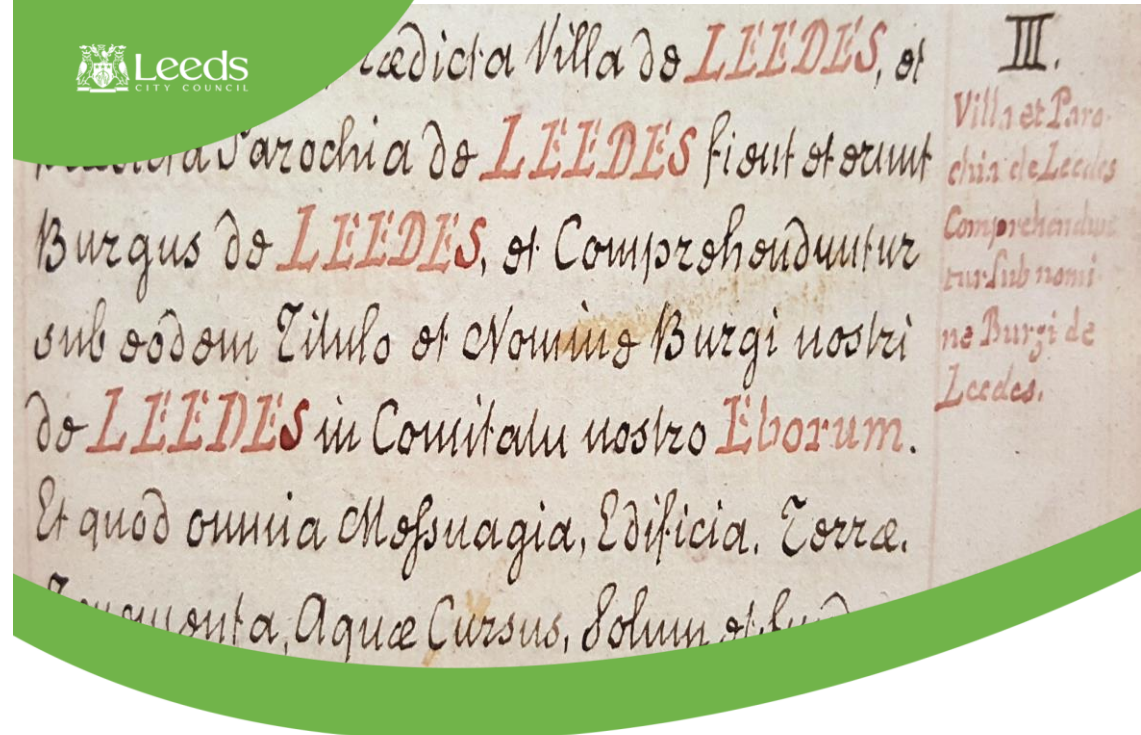 Leeds
CITY COUNCIL
ædicta Villa de LEEDES, et
Parochia de LEEDES fient et erunt
Burgus de LEEDES, et Comprehenduntur
sub eodem Titulo et Nomine Burgi nostri
de LEEDES in Comitatu nostro Eborum.
Et quod omnia Messuagia, Edificia, Terræ,
Aquæ Cursus, Solum et
III.
Villa et Paro-
chia de Leedes
Comprehendun-
tur sub nomi-
ne Burgi de
Leedes.